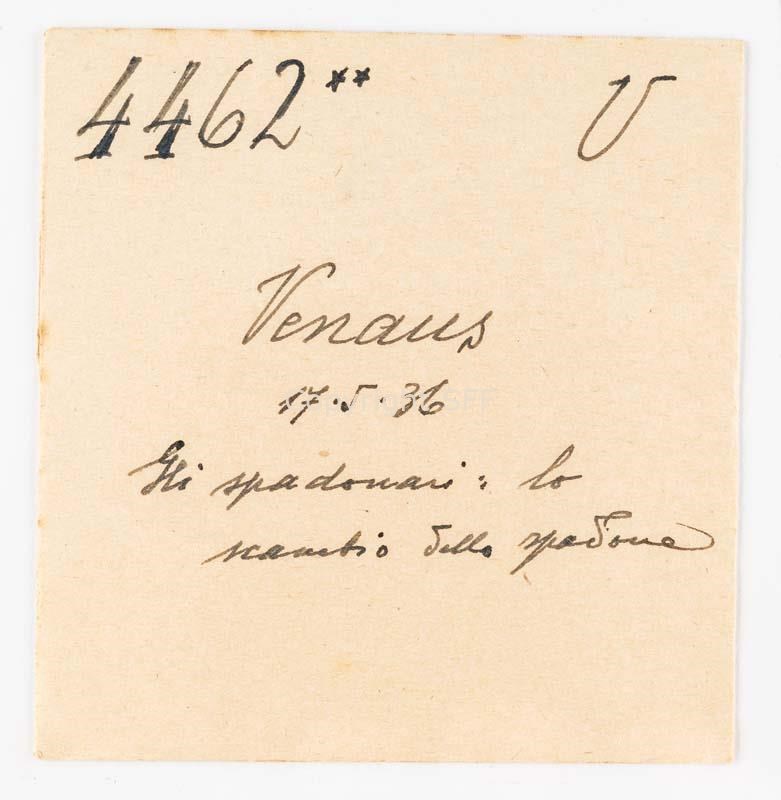 4462** V
Venaus
17.5.36
Gli spadonari: lo
scambio dello spadone